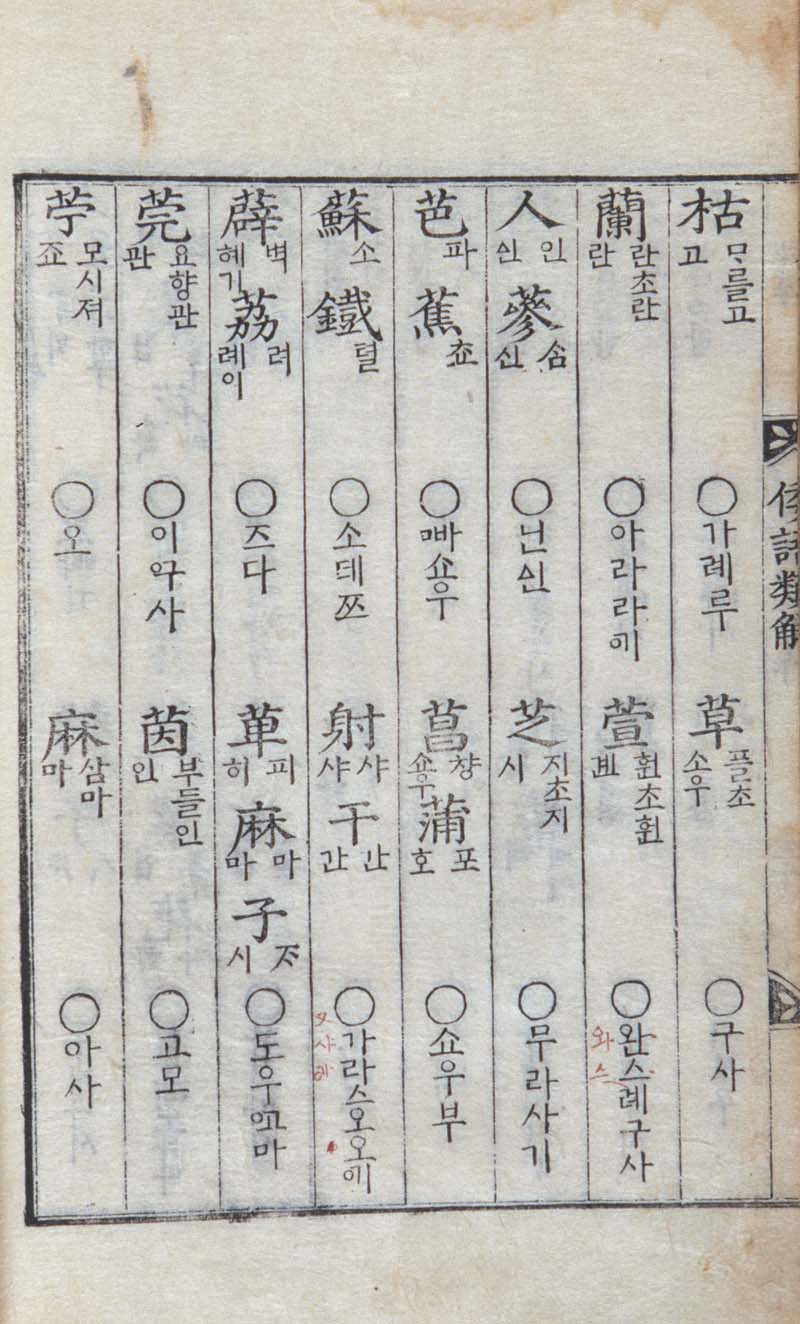 倭語類解
枯 ᄆᆞ를고 고 ○가례루 草 플초 소우 ○구사
蘭 란초란 란 ○아라라ᅇᅵ 萱 훤초훤 ○완스례구사 와스
人 인 신 蔘 ᄉᆞᆷ 신 ○닌신 芝 지초지 시 ○무라사기
芭 파 蕉 쵸 ○빠쇼우 菖 챵 쇼우 蒲 포 호 ○쇼우부
蘇 소 鐵 텰 ○소데쯔 射 샤 샤 干 간 간 ○가라스오오ᅇᅵ
薜 벽 혜기 荔 려 례이 ○즈다 萆 피 히 麻 마 마 子 ᄌᆞ 시 ○도우ᅇᅩ마
莞 요향관 관 茵 부들인 인 ○고모
苧 모시져 죠 ○오 麻 삼마 마 ○아사